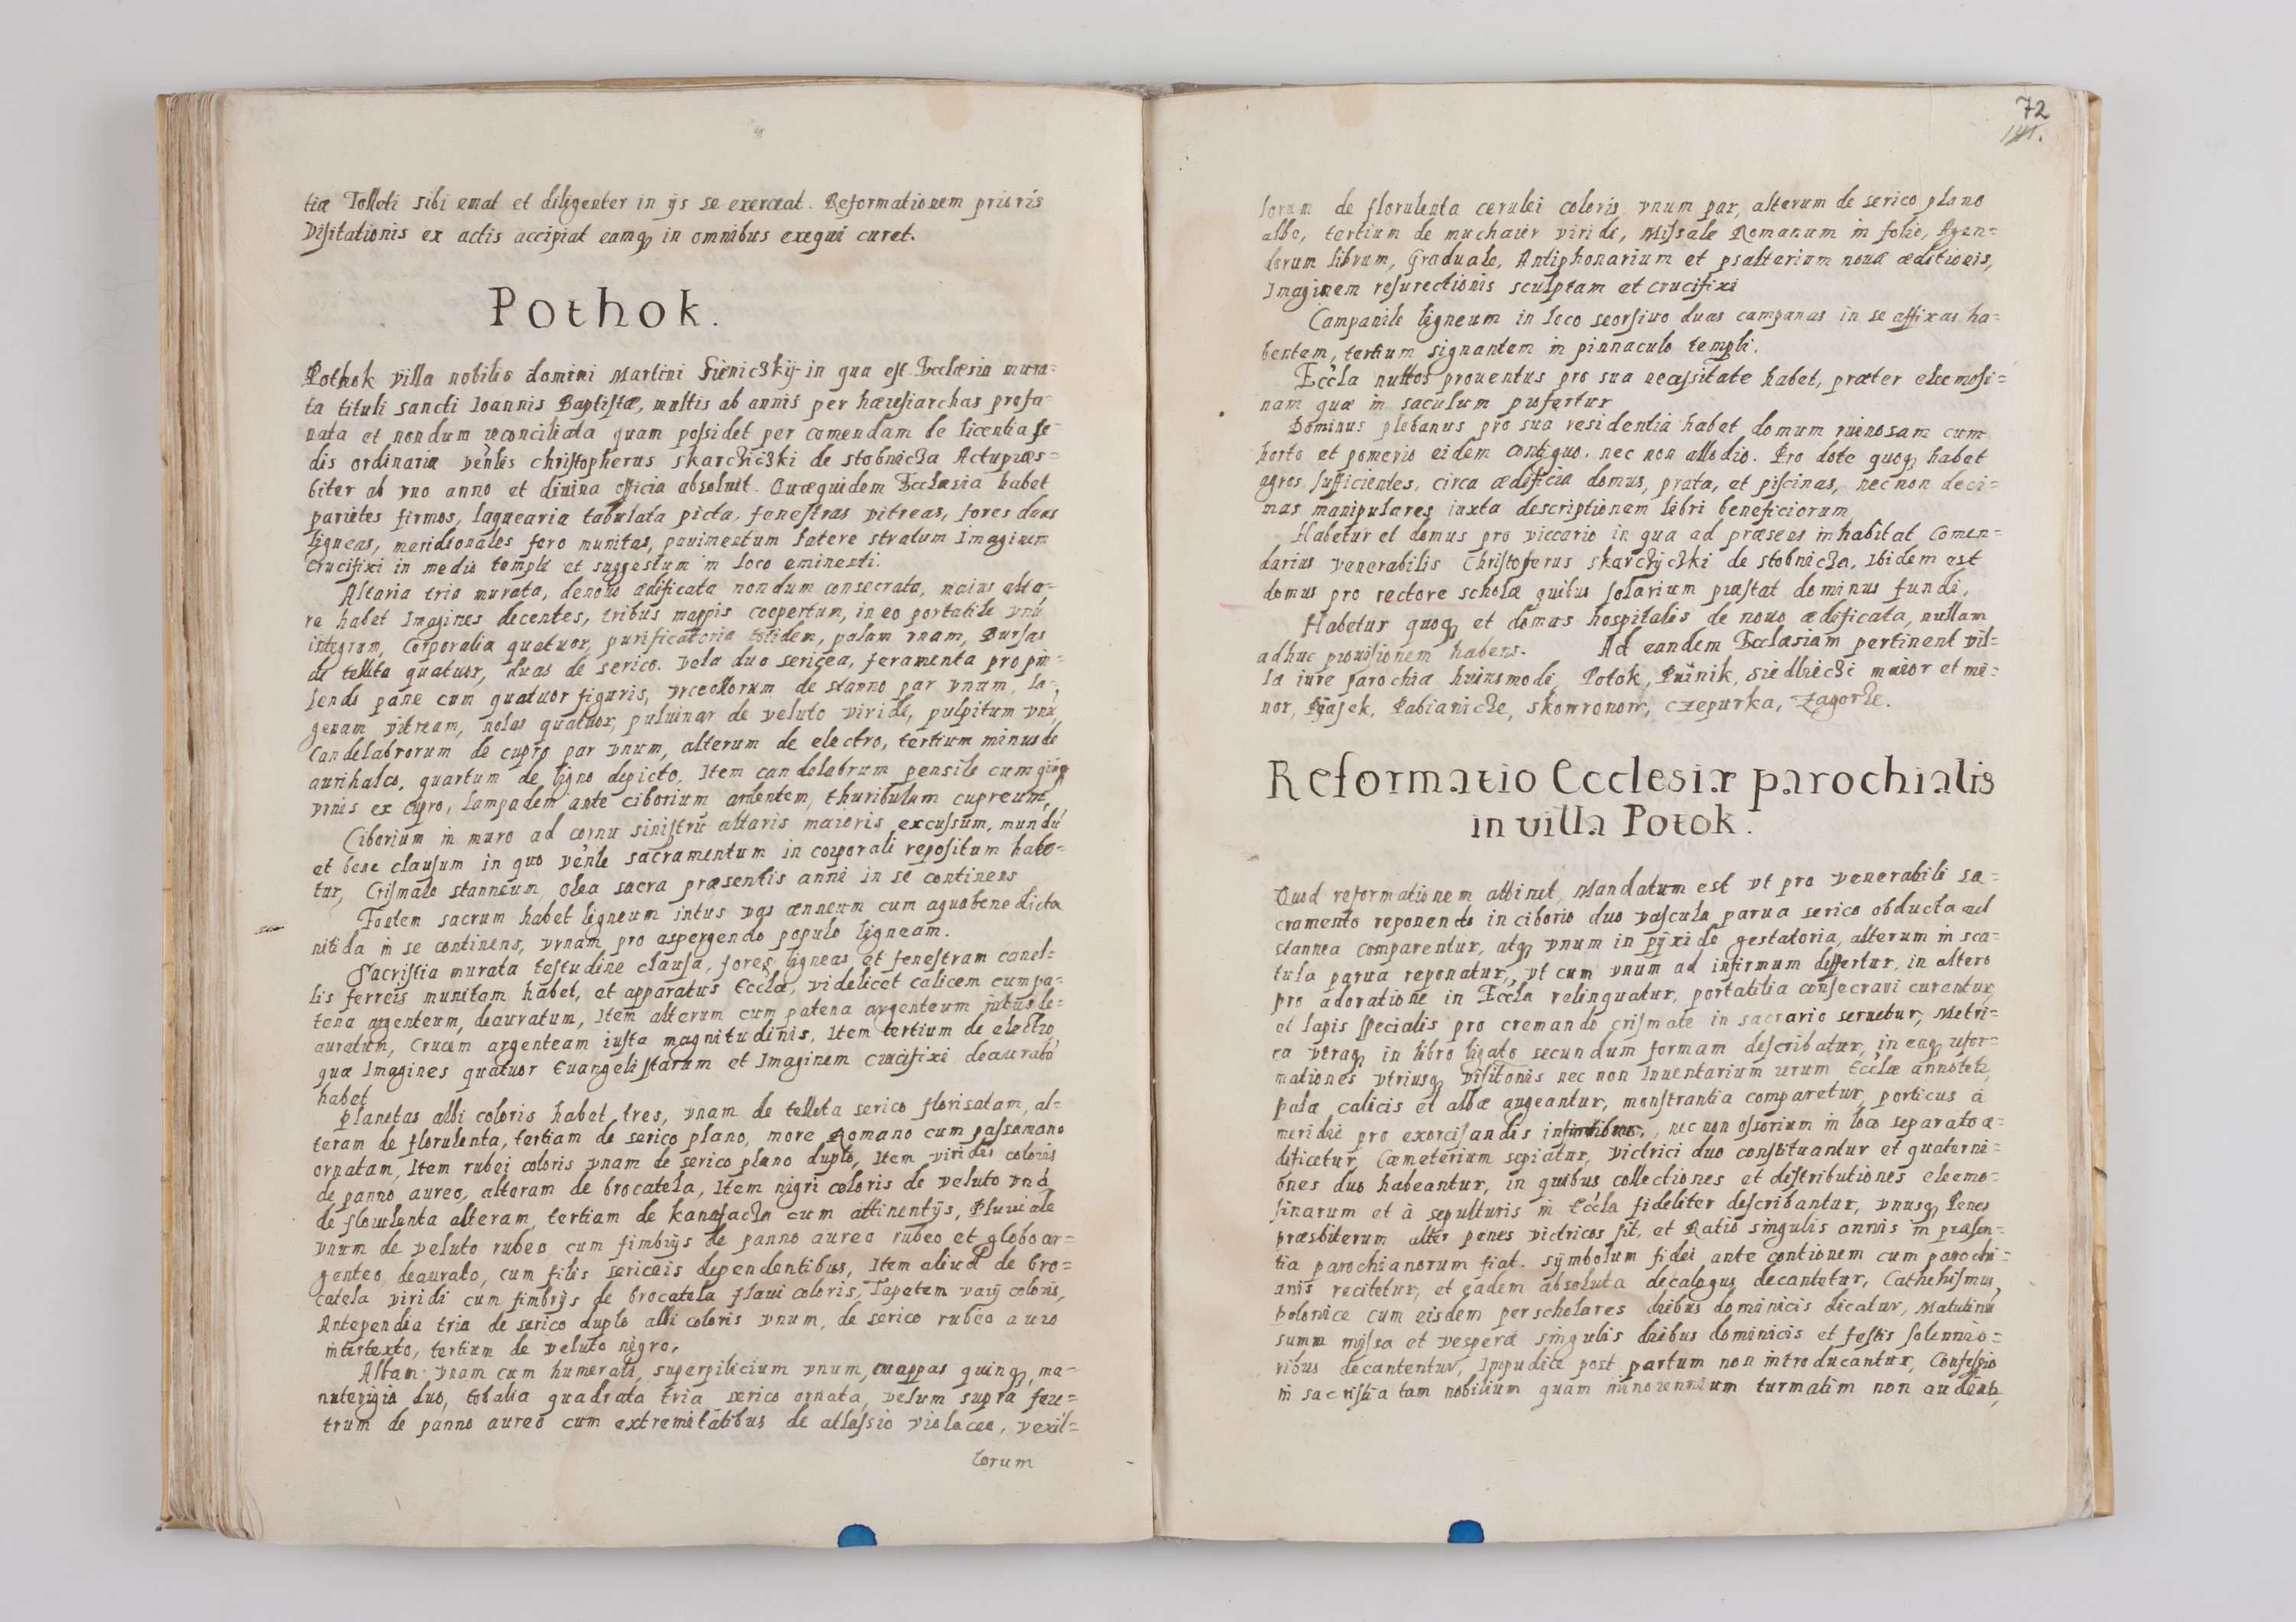 tiæ Tolleti sibi emat et diligenter in ijs se exerceat. Reformationem prioris
Visitationis ex actis accipiat eamq; in omnibus exequi curet.
Pothok.
Pothok villa nobilis domini Martini Sienicskij in qua est Ecclæsia mura-
ta tituli sancti Ioannis Baptistæ, multis ab annis per hæresiarchas profa-
nata et nondum reconciliata quam possidet per comendam de licentia se-
dis ordinariæ venlis christopherus skarchicski de stobnicza Actu præs-
biter ab vno anno et diuina officia absoluit. Quæquidem Ecclæsia habet
parietes firmos, laquearia tabulata picta, fenestras vitreas, fores duas
ligneas, meridionales fero munitas, pauimentum latere stratum Imaginem
Crucifixi in medio templi et suggestum in loco eminenti.
Altaria tria murata, denouo ædificata nondum consecrata, maius alta-
re habet Imagines decentes, tribus mappis coopertum, in eo portatile vnū
integrum, Corporalia quatuor, purificatoria totidem, palam vnam, Bursas
de teleta quatuor, duas de serico. Vela duo sericea, feramenta pro pin-
sendo pane cum quatuor figuris, vrceollorum de stanno par vnum, la-
genam vitream, nolas quatuor, puluinar de veluto viride, pulpitum vnū,
Candelabrorum de cupro par vnum, alterum de electro, tertium minus de
aurihalco, quartum de ligno depicto. Item candelabrum pensile cum quinq;
vrnis ex cupro, lampadem ante ciborium ardentem, thuribulum cupreum,
Ciborium in muro ad cornu sinistrū altaris maioris excussum, mundū
et bene clausum in quo venle sacramentum in corporali repositum habe-
tur, Crismale stanneum, olea sacra præsentis anni in se continens
Fontem sacrum habet ligneum intus vas ænneum cum aqua benedicta
nitida in se continens, vrnam pro aspergendo populo ligneam.
Sacristia murata testudine clausa, fores ligneas et fenestram cancel-
lis ferreis munitam habet, et apparatus Ecclæ, videlicet calicem cum pa-
tena argenteum, deauratum, Item alterum cum patena argenteum intus de-
auratum, Crucem argenteam iusta magnitudinis, Item tertium de electro
quæ Imagines quatuor Euangelistarum et Imaginem crucifixi deauratō
habet
Planetas albi coloris habet tres, vnam de telleta serico florisatam, al-
teram de florulenta, tertiam de serico plano, more Romano cum passamano
ornatam, Item rubei coloris vnam de serico plano duplo, Item viridis coloris
de panno aureo, alteram de brocatela, Item nigri coloris de veluto vnā
de florulenta alteram, tertiam de kanafacza cum attinentijs, Pluuiale
vnum de veluto rubeo cum fimbrijs de panno aureo rubeo et globo ar-
genteo deaurato, cum filis sericeis dependentibus, Item aliud de bro-
catela viridi cum fimbrijs de brocatela flaui coloris, Tapetem varij coloris,
Antependia tria de serico duplo albi coloris vnum, de serico rubeo auro
intertexto, tertium de veluto nigro,
Albam vnam cum humerali, superpilicium vnum, mappas quinq; ma-
nutergia duo, tobalia quadrata tria serico ornata, velum supra fere-
trum de panno aureo cum extremitatibus de atlassio violaceo, vexil-
lorum
72
lorum de florulenta cerulei coloris vnum par, alterum de serico plano
albo, tertium de muchaier viride, Missale Romanum in folio, Agen-
dorum librum, Graduale, Antiphonarium et psalterium nouæ æditionis,
Imaginem resurectionis sculptam et crucifixi
Campanile ligneum in loco seorsiuo duas campanas in se affixas ha-
bentem, tertium signantem in pinnaculo templi.
Eccla nullos prouentus pro sua necessitate habet, præter eleemosi-
nam quæ in saculum profertur
Dominus plebanus pro sua residentia habet domum ruinosam cum
horto et pomerio eidem contiguo, nec non allodio. Pro dote quoq; habet
agros sufficientes, circa ædificia domus, prata, et piscinas, nec non deci-
mas manipulares iuxta descriptionem libri beneficiorum
Habetur et domus pro viccario in qua ad præsens inhabitat Comen-
darius venerabilis Christoferus skarchijcski de stobnicza. Ibidem est
domus pro rectore scholæ quibus solarium præstat dominus fundi,
Habetur quoq; et domus hospitalis de nouo ædificata, nullam
adhuc prouisionem habens. Ad eandem Ecclæsiam pertinent vil-
la iure parochiæ huiusmodi, Potok, Ruinik, Siedlzicki maior et mi-
nor, Pijasek, Pabianicze, skowronow, Czepurka, Zagorze.
Reformatio Ecclesiæ parochialis
in villa Potok.
Quod reformationem attinet, Mandatum est vt pro venerabili sa-
cramento reponendo in ciborio duo vascula parua serico obducta uel
stannea comparentur, atq; vnum in pyxide gestatoria, alterum in sca-
tula parua reponatur, vt cum vnum ad infirmum deffertur, in altero
pro adoratione in Eccla relinquatur, portatilia consecrari curentur,
et lapis specialis pro cremando crismate in sacrario seruetur, Metri-
ca vtraq; in libro ligato secundum formam describatur, in eaq; refor-
mationes vtriusq; visitonis nec non Inuentarium rerum Ecclæ annotetr,
pala calicis et albæ augeantur, monstrantia comparetur, porticus à
meridie pro exorcisandis nec non ossorium in loco separato æ-
dificetur, Cæmeterium sepiatur, victrici duo constituantur et quaterni-
ones duo habeantur, in quibus collectiones et distributiones eleemo-
sinarum et à sepulturis in Eccla fideliter describantur, vnusq; Penes
præsbiterum alter penes victricos sit, et Ratio singulis annis in præsen-
tia parochianorum fiat. symbolum fidei ante contionem cum parochi-
anis recitetur, et eadem absoluta decalogus decantetur, Cathehismus
polonice cum eisdem per scholares diebus dominicis dicatur, Matutinū
summ missa et vesperæ singulis diebus dominicis et festis solennio-
ribus decantentur, Impudicæ post partum non introducantur, Confessio
in sacristia tam nobilium quam minorennium turmatim non audiatr,